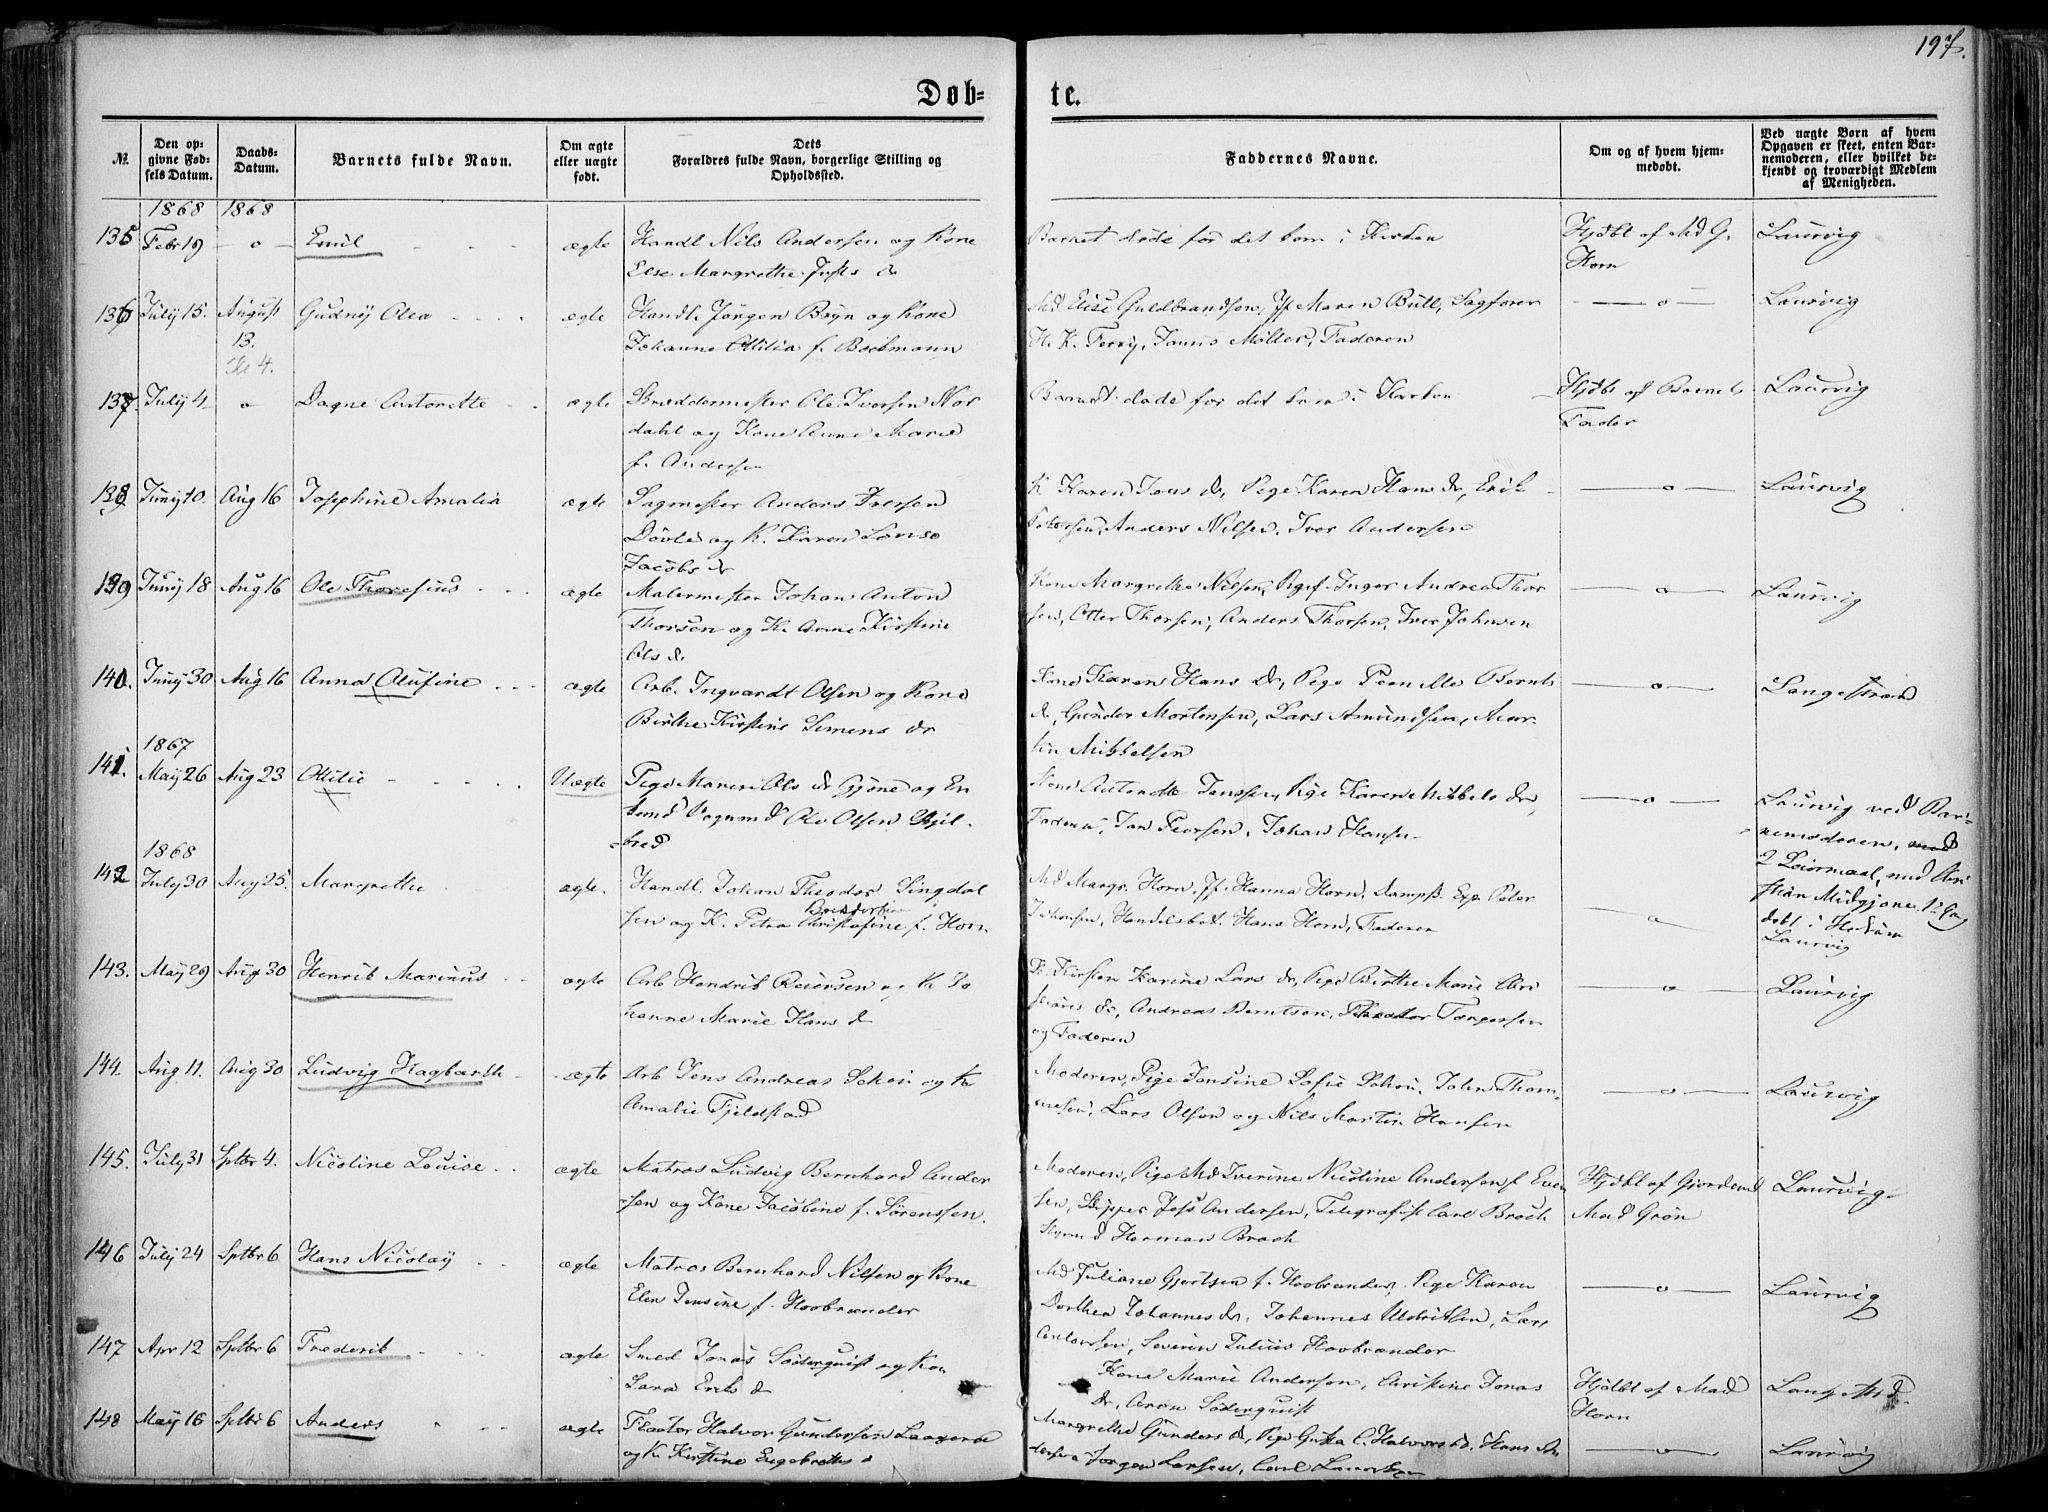 197.
Døb=
te.
№.
Den op-
givne Fød-
sels Datum.
Daabs-
Datum.
Barnets fulde Navn.
Om ægte
eller uægte
født.
Dets
Forældres fulde Navn, borgerlige Stilling og
Opholdssted.
Faddernes Navne.
Om og af hvem hjem-
medøbt.
Ved uægte Børn af hvem
Opgaven er skeet, enten Bar-
nemoderen, eller hvilket be-
kjendt og troværdigt Medlem
af Menigheden.
1868 1868
135 Febr 19 — o — Emil ægte Handl Nils Andersen og Kone
Else Margrethe
Barnet døde før det kom i Kirken
Hjdbt af Md G.
Horn
Laurvig
136 July 15. August
13.
Kl 4.
Gudny Olea ægte Handl. Jørgen Bryn og Kone
Johanne Ottilia f. Bochmann
Md Elise Guldbrandsen, Jf Maren Bull, Sagfører
H. K. Ferry, Faderen
— o —
Laurvig
137 July 4 o Dagne Antonette ægte Snedkermester Ole Iversen Nor
dahl og Kone Anne Marie
f. Andersen
Barnet døde før det kom i Kirken
Hjdbt af Barnets
Fader
Laurvig
138 Juny 10. Aug 16 Josephine Amalia ægte Sagmester Anders Iversen
og K. Karen Lovise
Jacobs dr
K Karen Jens dr, Pige Karen Hans dr, Erik
Petersen, Anders Nilsen, Iver Andersen
— o —
Laurvig
139 Juny 18 Aug 16 Ole Thorefius ægte Malermester Johan Anton
Thorsen og K. Anne Kirstine
Ols dr
Kone Margrethe Nilsen, Pige Inger Andrea Thor
sen, Otter Thorsen, Anders Thorsen, Iver Johnsen
— o —
Laurvig
140. Juny 30 Aug 16 Anna Olufine ægte Arb. Ingvardt Olsen og Kone
Birthe Kirstine Simens dr
Kone Karen Hans dr, Pige Pernille Bernts
dr, Gunder Mortensen, Lars Amundsen, Mar-
tin Mikkelsen
— o —
Langestrand
1867
141. May 26 Aug 23 Otilie Uægte Pige Maren Ols dr Gjøne og En
kemd Ole Olsen Skjel-
bred
Kone Antonette Jenssen, Pige Karen Mikkels dr,
Faderen, Jan Peersen, Johan Hansen
— o —
Laurvig ved Bar-
nemoderen,
2 Leiermaal, med Kri
stian Midgjone, 1ste Gang
døbt i Hedrum
1868
142 July 30 Aug 25. Margrethe ægte. Handl. Johan Theodor Singdal
sen og K. Petra Christofine f. Horn
Md Margr. Horn, Jf. Hanna Horn, Dampsk. Exp. Peter
Johansen, Handelsbet. Hans Horn, Faderen
— o —
Laurvig
143. May 29 Aug 30 Henrik Marinus ægte Arb Hendrik Reiersen og K Jo
hanne Marie Hans dr
K. Kirsten Karine Lars dr, Pige Birthe Marie Chri
stians dr, Andreas Berntsen, Torgersen
og Faderen
— o —
Laurvig
144. Aug 11. Aug 30 Ludvig Hagbarth ægte Arb Jens Andreas Schou og K
Amalie Fjeldstad
Moderen, Pige Jensine Sofie Schou, John Thom-
mesen, Lars Olsen og Nils Martin Hansen
— o —
Laurvig
145. July 31 Sptbr 4. Nicoline Louise ægte Matros Ludvig Bernhard Ander
sen og Kone Jacobine f. Sørenssen.
Moderen, Pige Md Iverine Nicoline Andersen f. Even
sen, Skipper Jess Andersen, Telegrafist Carl Broch
Styrmd Herman Broch
Hjdbt af Gjordemd
Mad Grøn
Laurvig
146 July 24 Sptbr 6 Hans Nicolay ægte Matros Bernhard Nilsen og Kone
Elen Jensine f. Hoobrander
Md Juliane Gjertsen f. Hoobrander, Pige Karen
Dorthea Johannes dr, Johannes Uldriksen, Lars
Antonsen, Severin Julius Hoobrander
— o —
Laurvig
147 Apr 12 Sptbr 6 Frederik ægte Smed Jonas Søderquist og Kone
Sara Eriks dr
Kone Marie Andersen, Christine Jonas
dr, Aron Søderquist
Hjdbt af Mad
Horn
148 May 16 Sptbr 6 Anders ægte Halvor Gundersen
og K Kirstine Engebrets d
Margrethe Gunders dr, Pige C. Halvors dr, Hans An
dersen, Jørgen Larsen, Carl
— o —
Laurvig